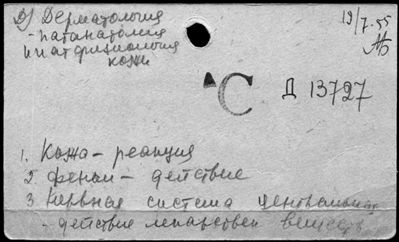 Д) Дерматология
- патанатомия
и патфизиология
кожи
19/7-55
C Д 13727
1. Кожа – реакция
2 Фенол – действие
3 Нервная система центральная
- действие лекарствен веществ